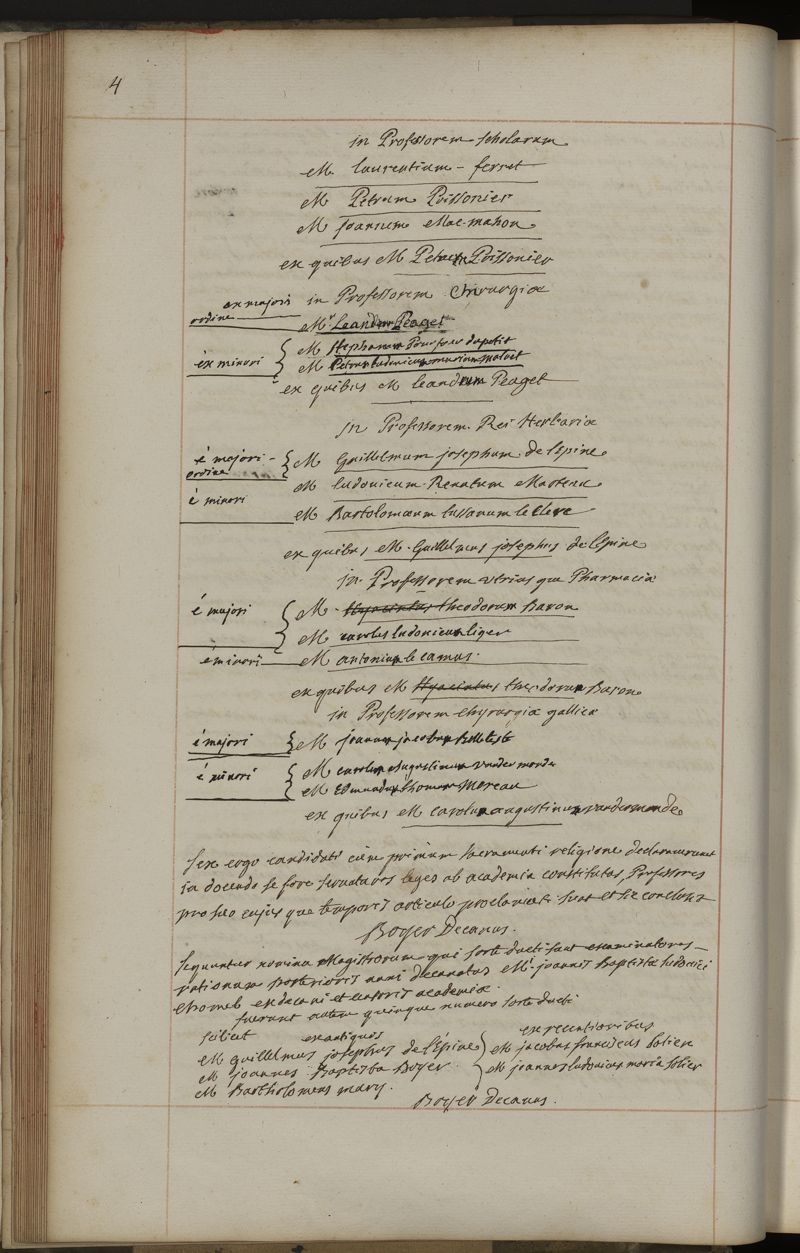 4
in Professorem scholarum
M. laurentium - ferret
M Petrum Poissonier
M Joannem Mac-mahon
ex quibus M Petrum Poissonier
ex majori in Professorem Chirurgiæ
ordine
Mr Leandrum Peaget
M Stephanum Pourfour dupetit
ex minori { M Petrum ludovicum mariam maloet
ex quibus M leandrum Peaget
in Professorem Rei Herbariæ
é majori - { M Guillelmum josephum de l'Epine
ordine
M ludovicum Renatum Marteau
é minori
M Bartolomæum tussanum le Clerc
ex quibus M. Guillelmus josephus de l'Epine
in Professorem utriusque Pharmaciæ
é majori { M. Hyacintus theodorum Baron
M carolus ludovicum liger
é minori M antonium le camus.
ex quibus M Hyacintus theodorum Baron
in Professorem chyrurgiæ gallicæ
é majori { M joannem jacobum Belleteste
é minori { M carolum Augustinum vandermonde
M Edmundum thomam Moreau
ex quibus M carolum augustinum vandermonde
sex ergo candidati cum primum sacramenti religione declaraverunt
in docendo se fore servatores leges ab academia constitutas, Professores
pro suo cujusque temporis articulo proclamati sunt et sic conclusit
Boyer Decanus.
sequuntur nomina Magistrorum qui sorte ducti sunt examinatores
rationum posterioris anni decanatus Mi joannis Baptistæ ludovici
chomel exdecani et censoris academiæ.
fuerunt autem quinque numero sorte ducti
scilicet ex antiquis ex recentioribus
M guillelmus josephus de l'Epine } M jacobus franciscus solier
M joannes Baptista Boyer M joannes ludovicus maria solier
M Bartholomeus mary.
Boyer Decanus.